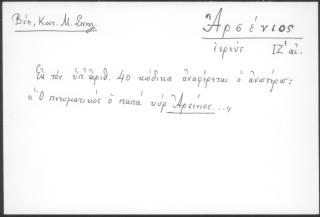 Βέη, Κατ. Μ. Σπηλ.
Ἀρσένιος
ἱερεύς ΙΖ' αἰ.
Εἰς τόν ὑπ' ἀριθ. 40 κώδικα ἀναφέρεται ὁ ἀνωτέρω:
«Ὁ πνωματικός ὁ παπά κύρ Ἀρσένιος...»